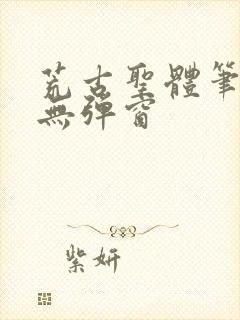 荒古聖體筆
無彈窗
紫妍